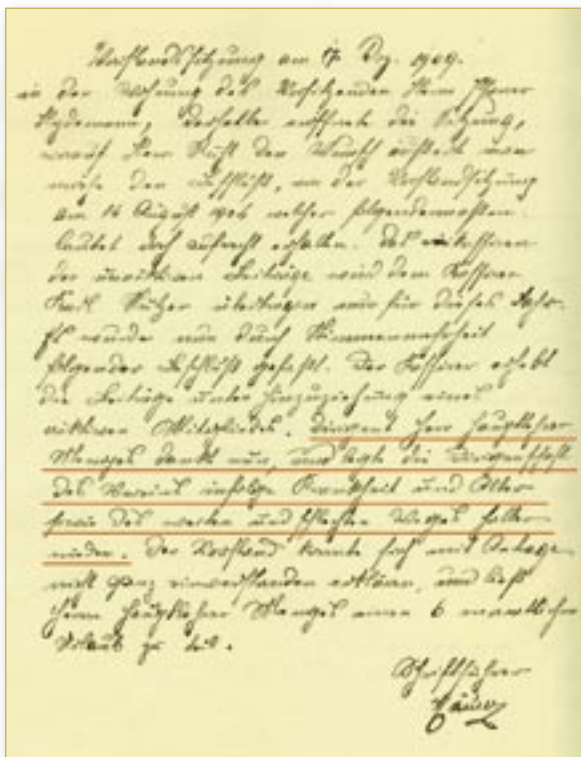 Vorstandssitzung am 17 Dez. 1909.
in der Wohnung des Vorsitzenden Herrn Pfarrer
derselbe eröffnete die Sitzung,
worauf Herr Rust den Wunsch äußerte man
möge den Beschluß, in der Vorstandssitzung
am 16 August 1906 welcher folgendermaßen
lautet doch aufrecht erhalten. Das einkassieren
der inaktiven Beiträge wird dem Kassierer
Karl übertragen nur für dieses Jahr.
Es wurde nun durch Stimmenmehrheit
folgender Beschluß gefaßt. Der Kassierer erhebt
die Beiträge unter Hinzuziehung eines
aktiven Mitgliedes. Dirigent Herr Hauptlehrer
Menges dankt nun, und legte die Dirigentschaft
des Vereins infolge Krankheit und Alter
sowie des weiten und schlechten Weges halber
nieder. Der Vorstand konnte sich mit
nicht ganz einverstanden erklären, und ließ
Herrn Hauptlehrer Menges einen 6 monatlichen
Urlaub zu teil.
Schriftführer